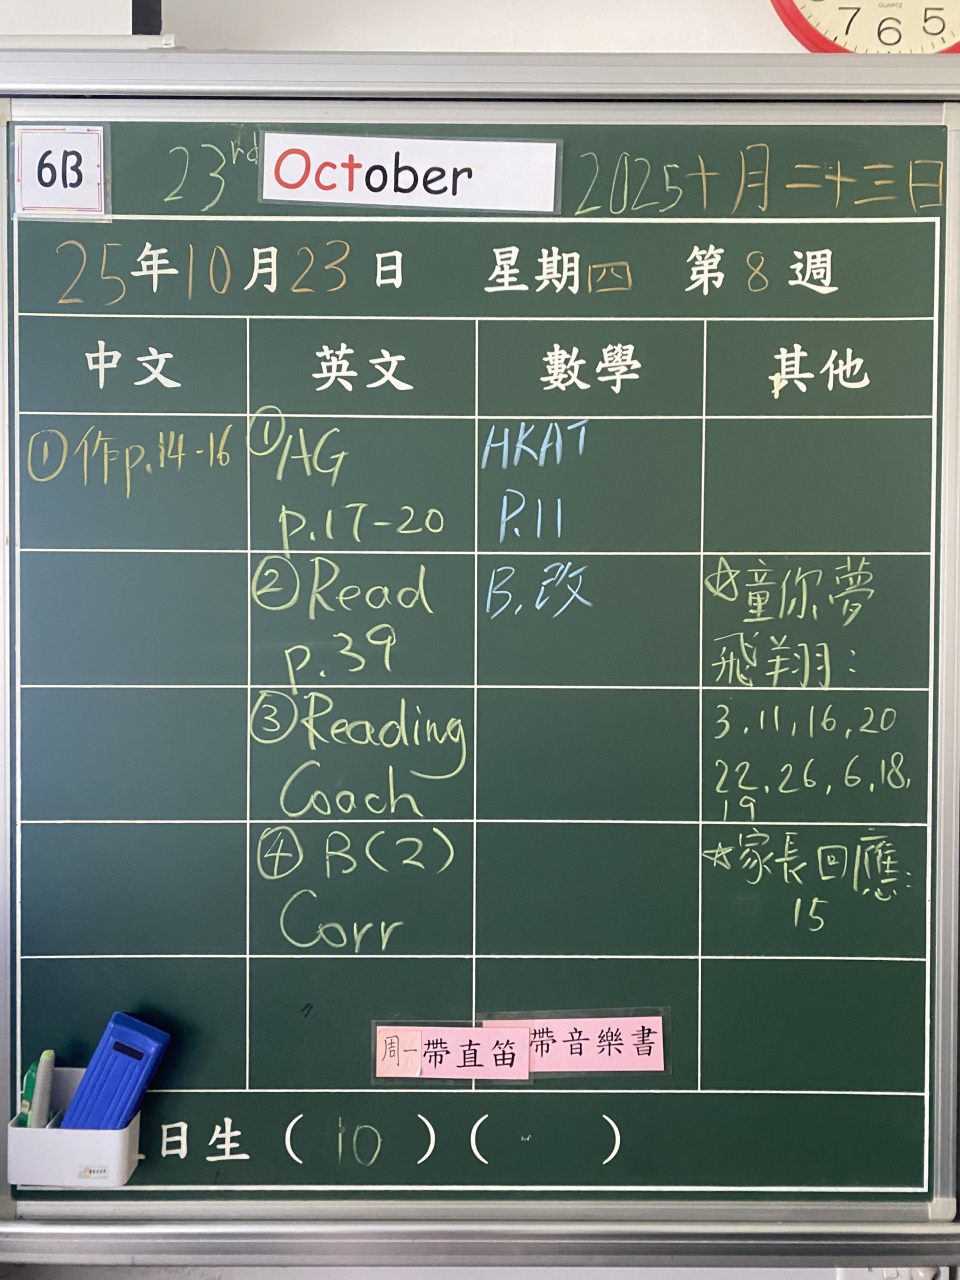 QUARTZ
7 6 5
6B
23rd October 2025十月二十三日
25年10月23日 星期四 第8週
中文 英文 數學 其他
①作p.14-16
①AG
p.17-20
②Read
p.39
③Reading
Coach
④B(2)
Corr
HKAT
P.11
B.改
☆童你夢
飛翔:
3.11,16,20
22.26,6.18,
19
☆家長回應:
15
周一帶直笛
帶音樂書
日生(10)( )